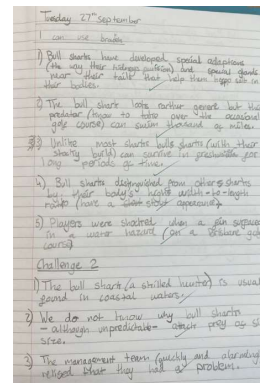 Tuesday 27th September
I can use brackets
1) Bull sharks have developed special adaptions
(the way their works) and special glands
near their tails that help them keep salt in
their bodies.
2) The bull shark looks rather generic but this
predator (know to take over the occasional
golf course) can swim thousand of miles.
3) Unlike most sharks bulls sharks (with their
stocky build) can survive in freshwater for
long periods of time.
4) Bull sharks distinguished from other sharks
by their body's higher width-to-length
ratio (have a stout appearance)
5) Players were shocked when a fin surfaced
in a water hazard (on a Brisbane golf
course)
Challenge 2
1) The bull shark (a skilled hunter) is usual
found in coastal waters.
2) We do not know why bull sharks
- although unpredictable - attack prey of
size.
3) The management team (quickly and alarmingly
relised that they had a problem.